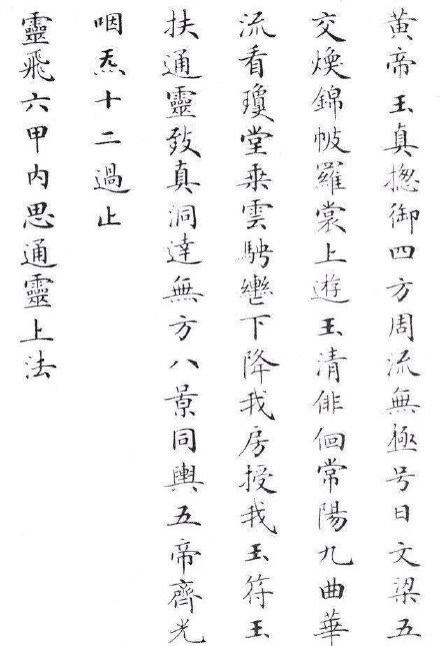 黄帝玉真揔御四方周流無極号曰文梁五
交煥錦帔羅裳上遊玉清俳佪常陽九曲華
流看瓊堂乗雲騁轡下降我房授我玉符玉
扶通靈致真洞達無方八景同輿五帝齊光
咽炁十二過止
靈飛六甲内思通靈上法